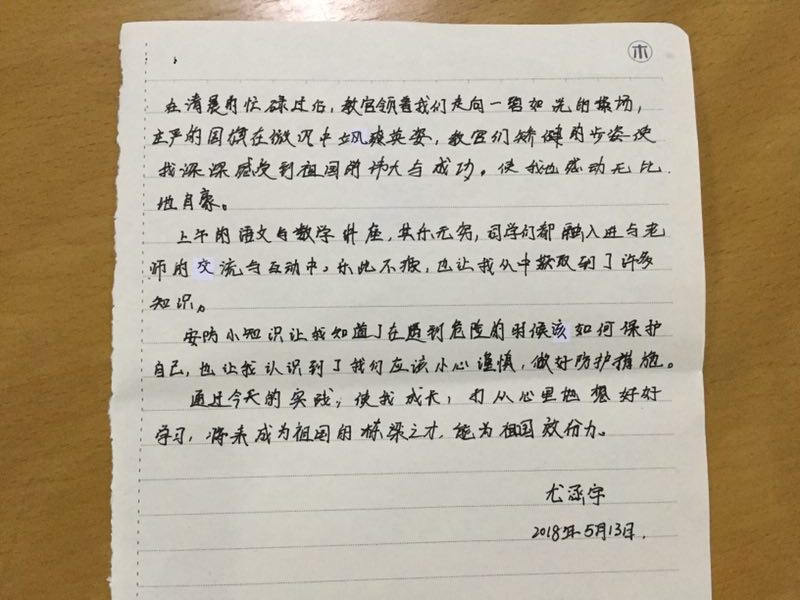 木
在清晨的忙碌过后，教官领着我们走向一望如光的操场，
庄严的国旗在微风中立风爽英姿，教官们矫健的步姿使
我深深感受到祖国的伟大与成功。使我也感动无比
地自豪。
上午的语文与数学讲座，其乐无穷，同学们都融入进与老
师的交流与互动中，乐此不疲，也让我从中获取到了许多
知识。
安防小知识让我知道了在遇到危险的时候该如何保护
自己，也让我认识到了我们应该小心谨慎，做好防护措施。
通过今天的实践，使我成长，打从心里地想好好
学习，将来成为祖国的栋梁之才，能为祖国效份力。
尤涵宇
2018年5月13日.